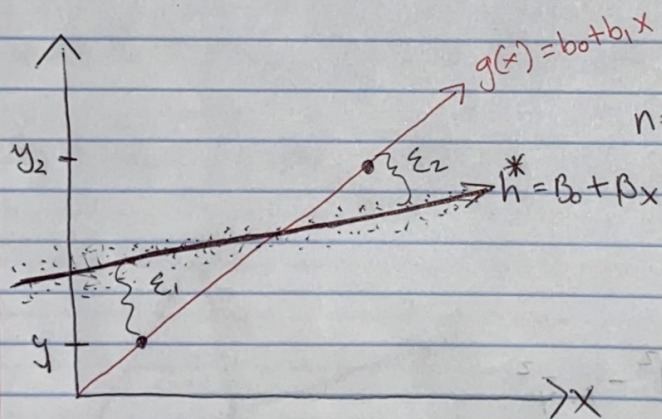 g(x) = b₀+b₁x
n=
y₂
ε₂
h* = β₀ + βx
ε₁
y
x